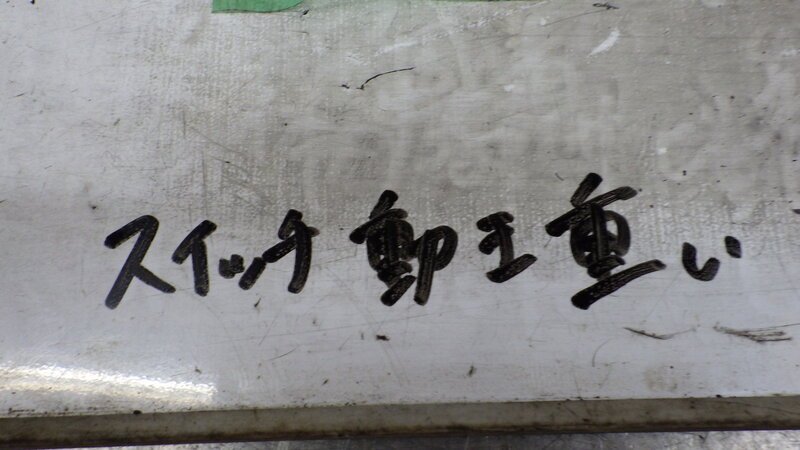 スイッチ動き重い